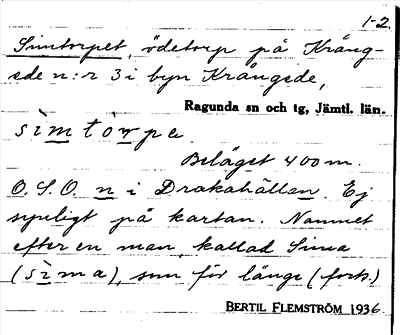 1-2.
Simtorpet, ödetorp på Krång-
ede n:r 3 i byn Krångede,
Ragunda sn och tg, Jämtl. län.
sìmtòrpe
Beläget 400 m.
O.S.O. n i Drakahällan. Ej
synligt på kartan. Namnet
efter en man, kallad Sima
(sìma), som för länge (forts.)
BERTIL FLEMSTRÖM 1936